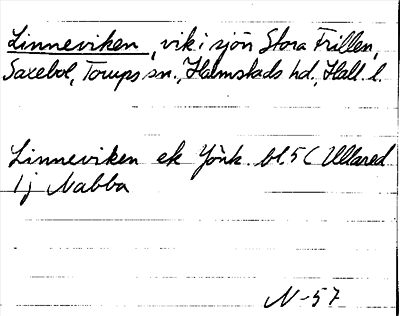 Linneviken, vik i sjön Stora Frillen,
Saxebol, Torups sn., Halmstads hd., Hall. l.
Linneviken ek Jönk. bl. 5 ( Ullared
1j Nabba
N-57